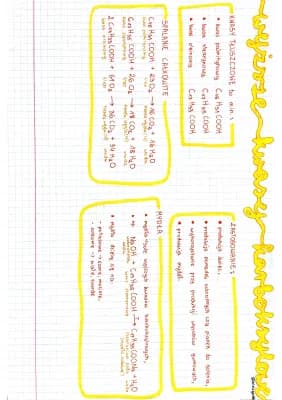 wyższe kwasy karboksylowe
KWASY TŁUSZCZOWE to m.in.:
• kwas palmitynowy C₁₅H₃₁COOH
• kwas stearynowy C₁₇H₃₅COOH
• kwas oleinowy C₁₇H₃₃COOH
SPALANIE CAŁKOWITE
C₁₅H₃₁COOH + 23 O₂ → 16 CO₂ + 16 H₂O
C₁₇H₃₅COOH + 26 O₂ → 18 CO₂ + 18 H₂O
2 C₁₇H₃₃COOH + 51 O₂ → 36 CO₂ + 34 H₂O
ZASTOSOWANIE:
• produkcja świec,
• produkcja
• wykorzystanie przy produkcji wyrobów gumowych,
• produkcja mydeł.
MYDŁA
• mydła - sole wyższych kwasów karboksylowych,
• np. NaOH + C₁₇H₃₅COOH → C₁₇H₃₅COONa + H₂O
• mydła dzielą się na:
- potasowe → szare, maziste,
- sodowe → białe, twarde